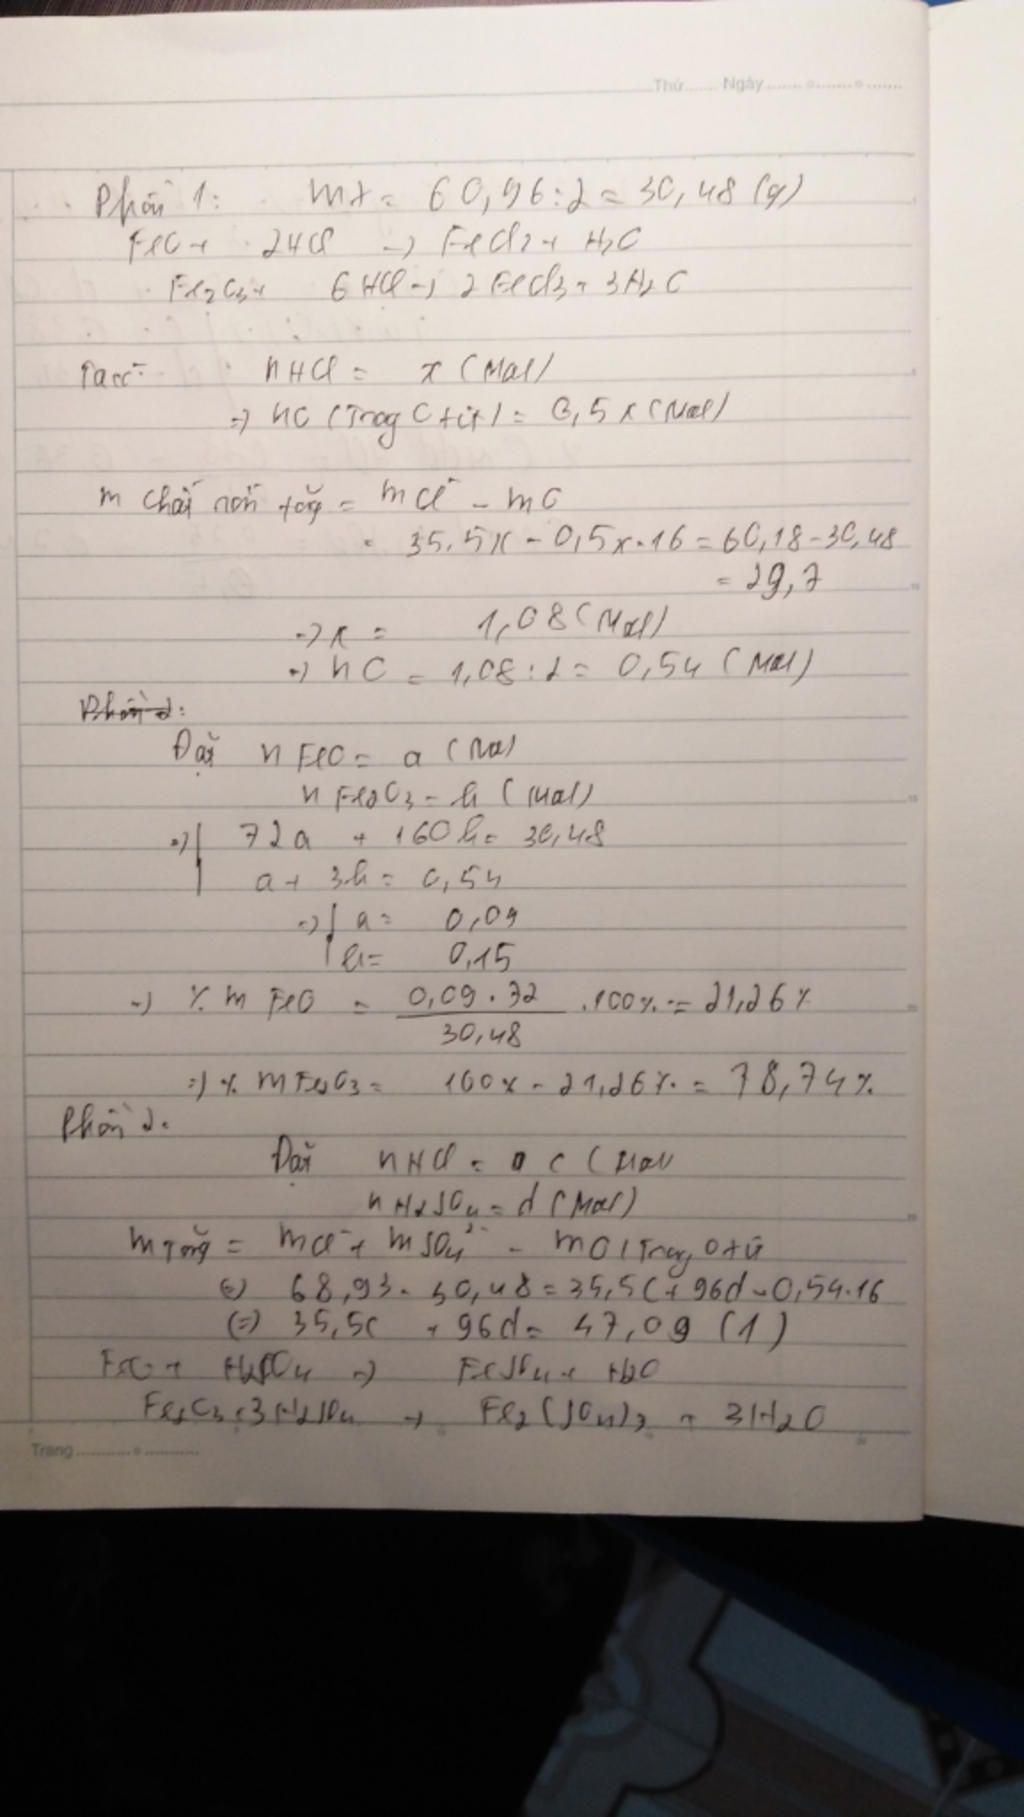 Thứ....... Ngày.......
Phần 1: mX = 60,96 : 2 = 30,48 (g)
FeO + 2HCl → FeCl2 + H2O
Fe2O3 + 6HCl → 2FeCl3 + 3H2O
Ta có: nHCl = x (Mol)
=> nO (Trong Oxit) = 0,5x (Mol)
m chất rắn tăng = mCl⁻ - mO
= 35,5x - 0,5x.16 = 60,18 - 30,48
= 29,7
=> x = 1,08 (Mol)
=> nO = 1,08 : 2 = 0,54 (Mol)
Phần 2:
Đặt nFeO = a (Mol)
nFe2O3 = b (Mol)
=> 72a + 160b = 30,48
a + 3b = 0,54
=> a = 0,09
b = 0,15
=> % m FeO = 0,09.72 / 30,48 .100% = 21,26%
=> % mFe2O3 = 100% - 21,26% = 78,74%
Phần 2:
Đặt nHCl = c (Mol)
nH2SO4 = d (Mol)
m Tăng = mCl⁻ + mSO4²⁻ - mO (Trong Oxit)
(=) 68,93 - 30,48 = 35,5c + 96d - 0,54.16
(=) 35,5c + 96d = 47,09 (1)
FeO + H2SO4 => FeSO4 + H2O
Fe2O3 + 3H2SO4 → Fe2(SO4)3 + 3H2O
Trang.......